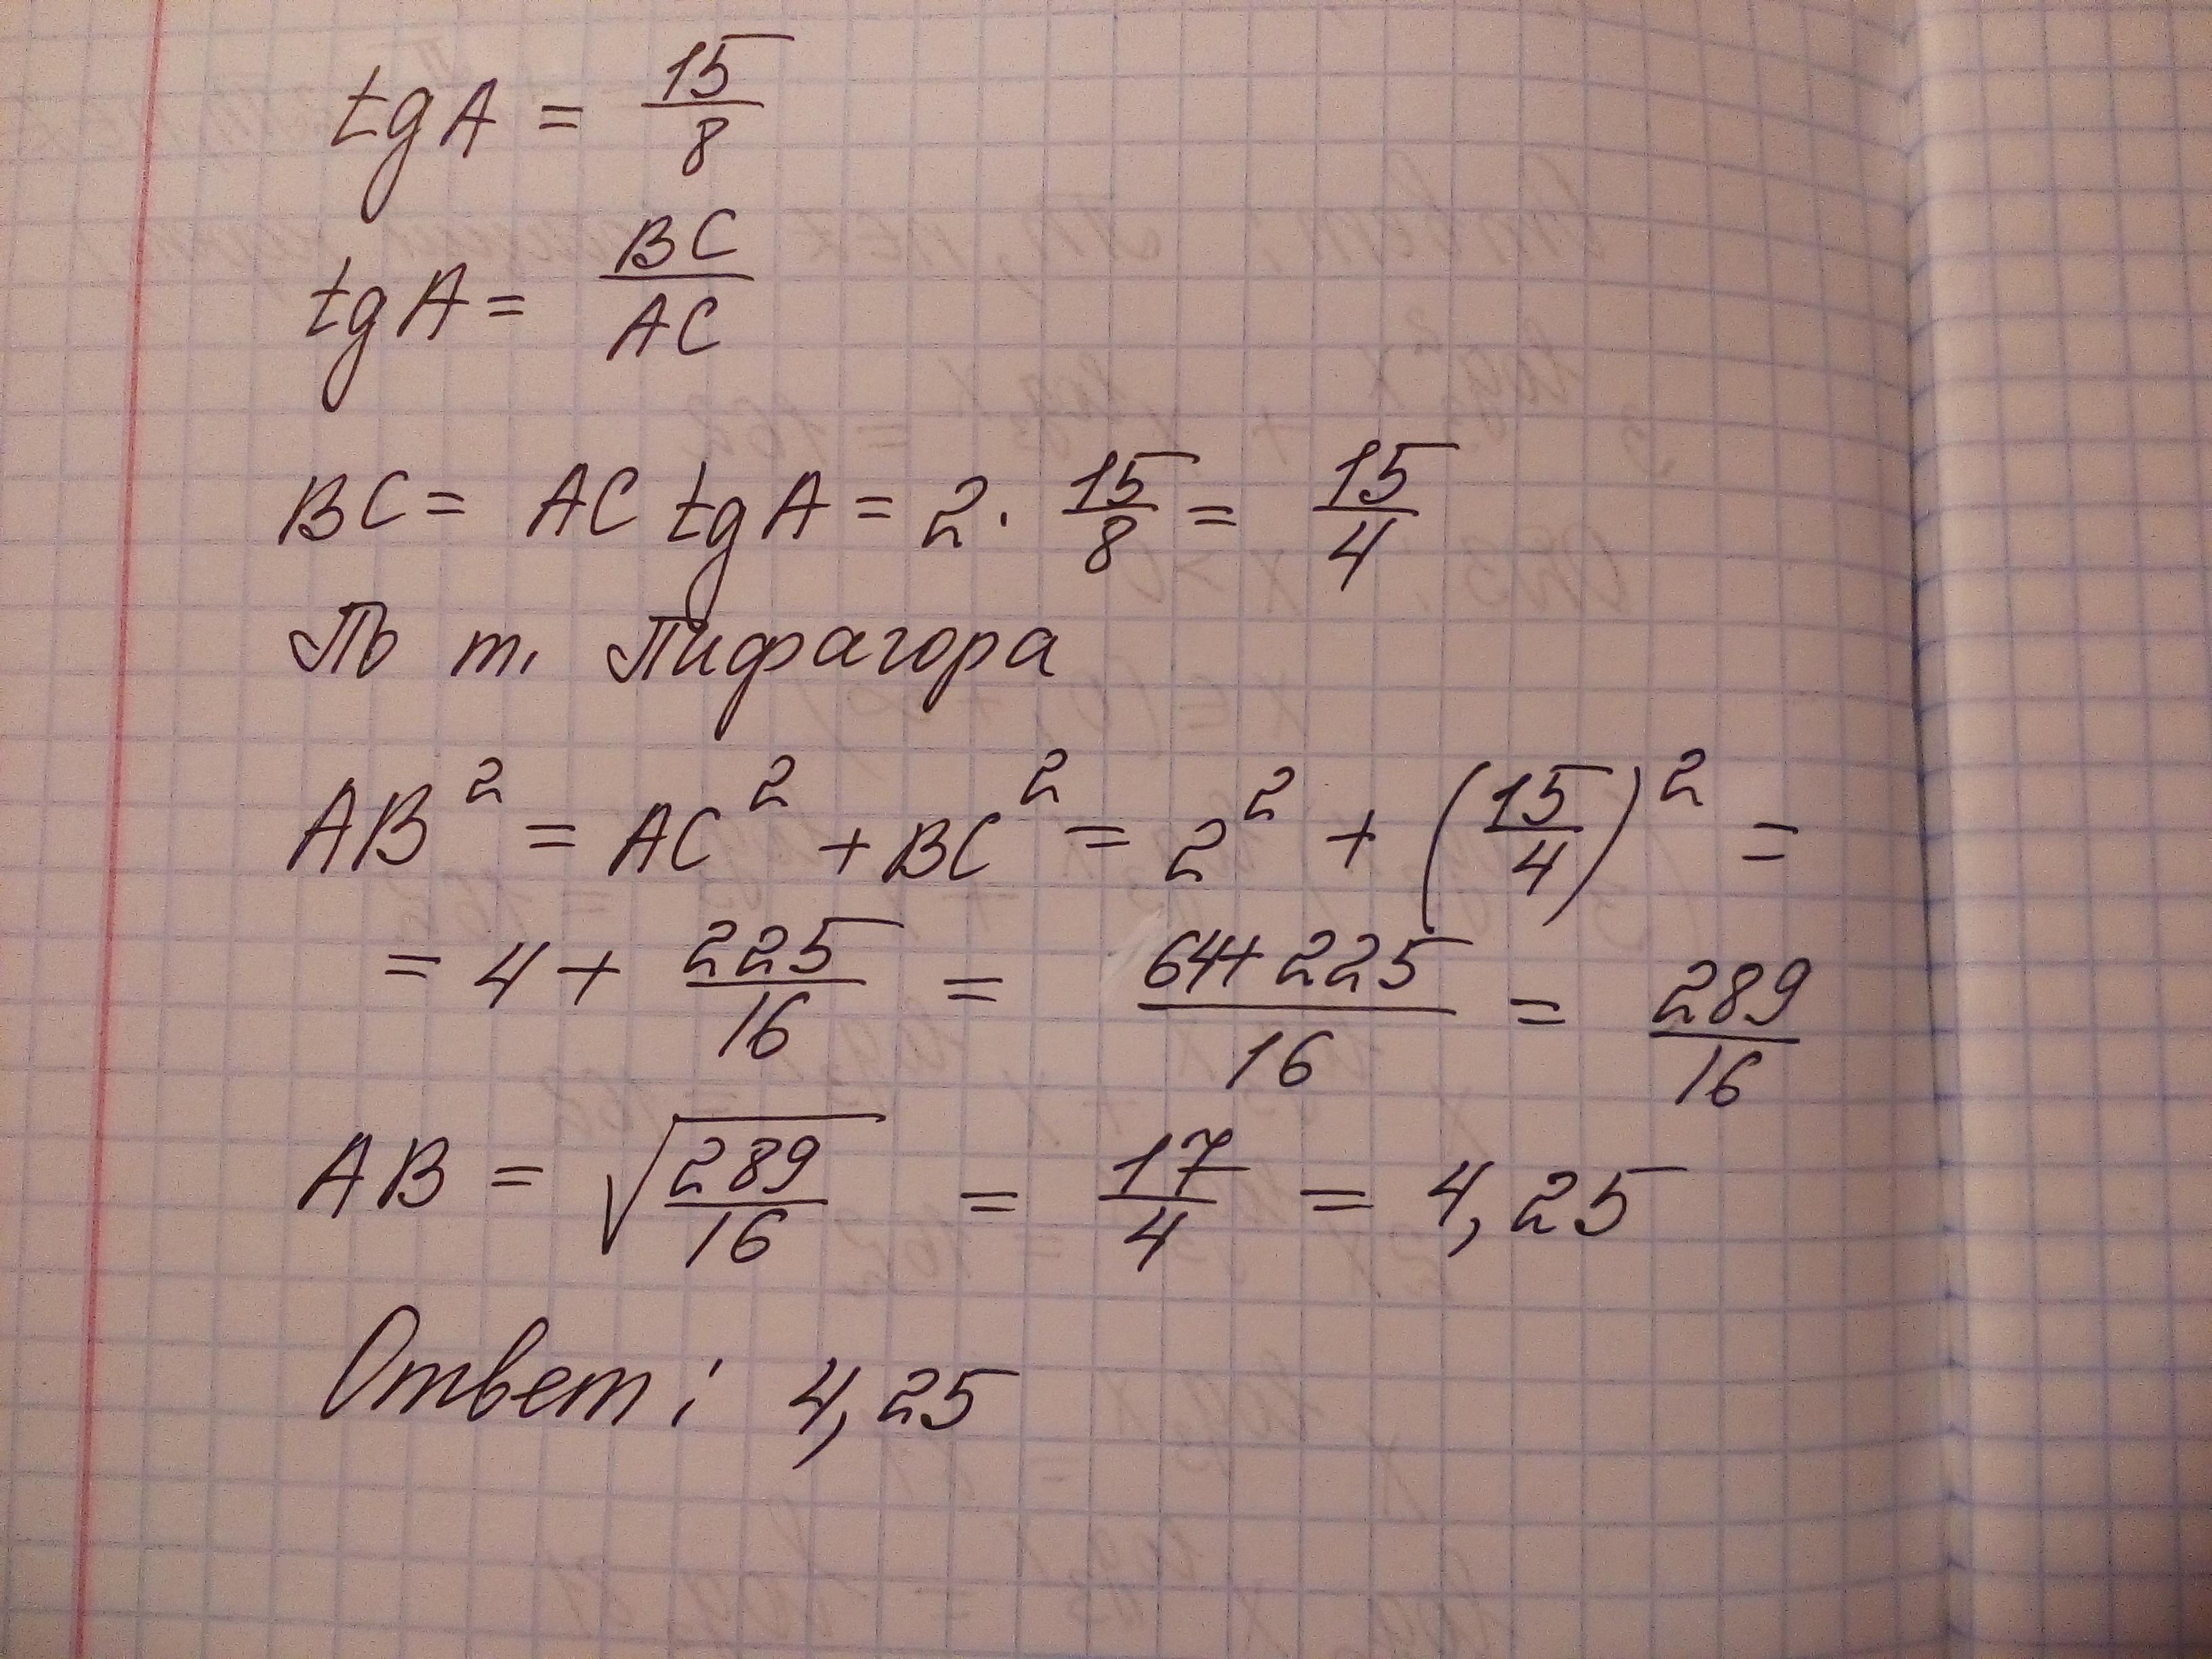 tg A = 15/8
tg A = BC/AC
BC = AC tg A = 2 · 15/8 = 15/4
По т. Пифагора
AB² = AC² + BC² = 2² + (15/4)² =
= 4 + 225/16 = 64+225/16 = 289/16
AB = √289/16 = 17/4 = 4,25
Ответ: 4,25